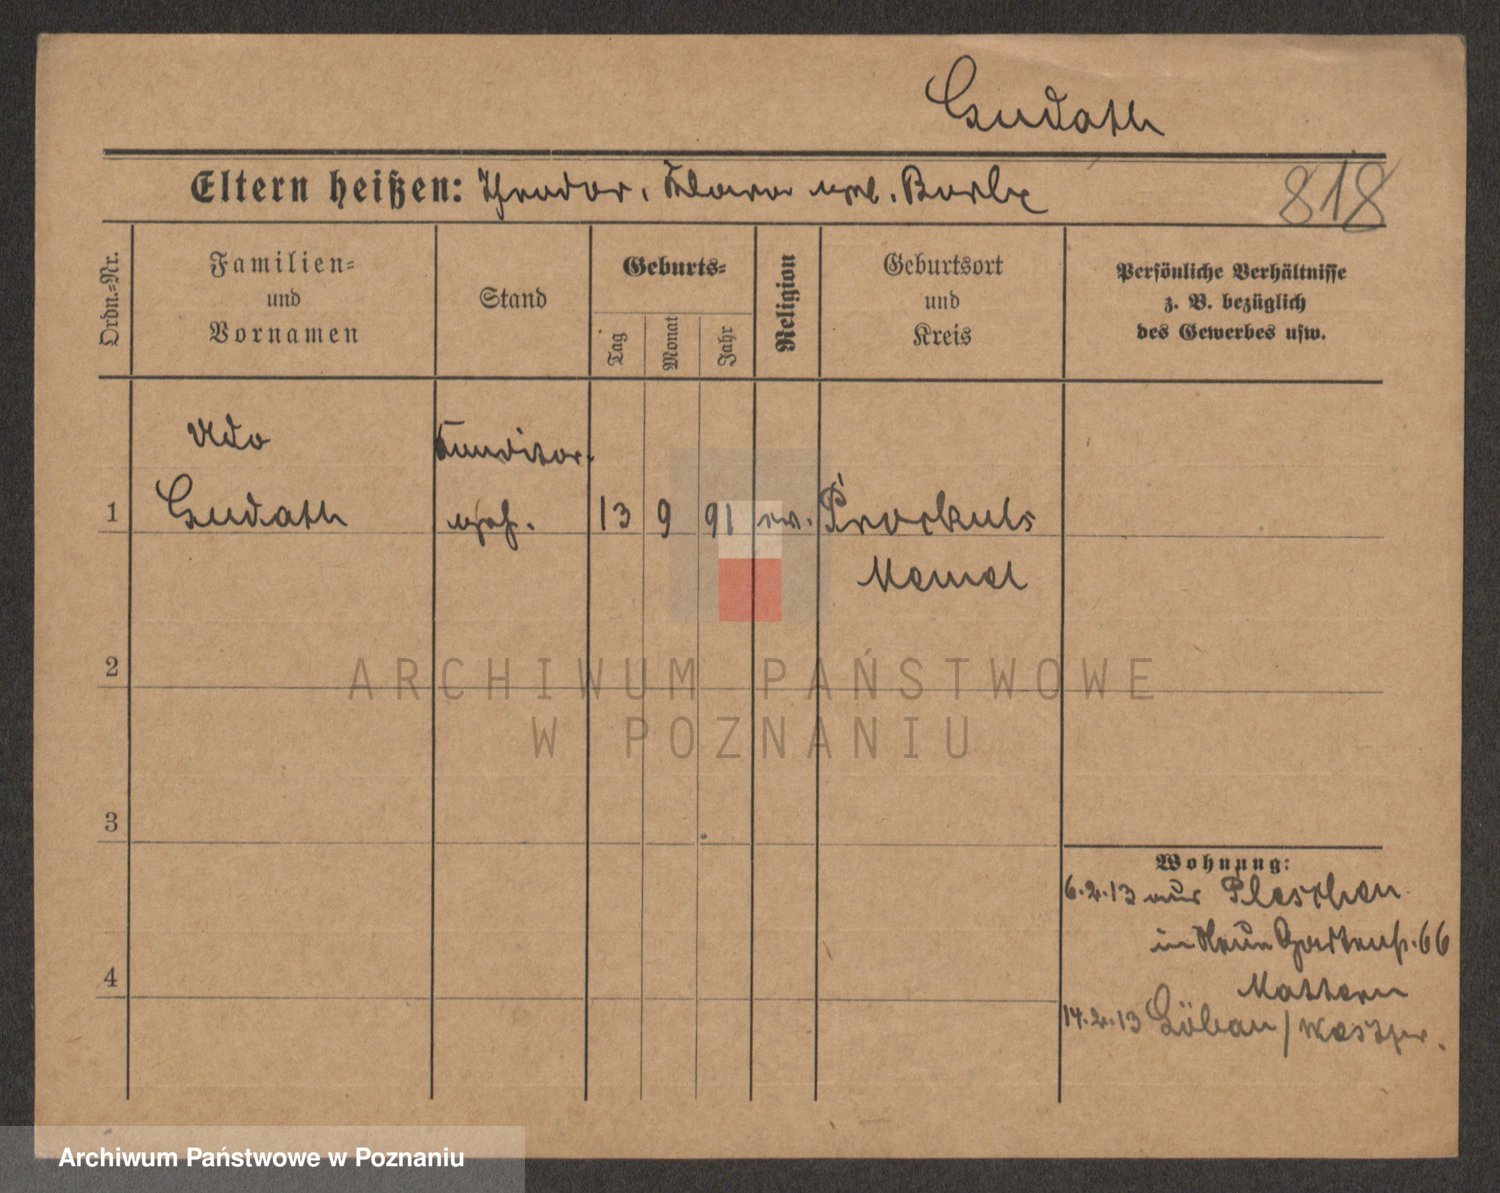 Gudath
Eltern heißen: Theodor, Klara geb.
818
Ordn.-Nr.
Familien-
und
Vornamen
Stand
Geburts-
Tag
Monat
Jahr
Religion
Geburtsort
und
Kreis
Persönliche Verhältnisse
z. B. bezüglich
des Gewerbes usw.
Udo
Konditor-
1 Gudath geh. 13 9 91 ev. Prockuls
Memel
2
3
4
Wohnung:
6.2.13 aus Pleschen
in Neue Gartenstr. 66
Mattern
14.2.13 Löbau / Westpr.
ARCHIWUM PAŃSTWOWE
W POZNANIU
Archiwum Państwowe w Poznaniu